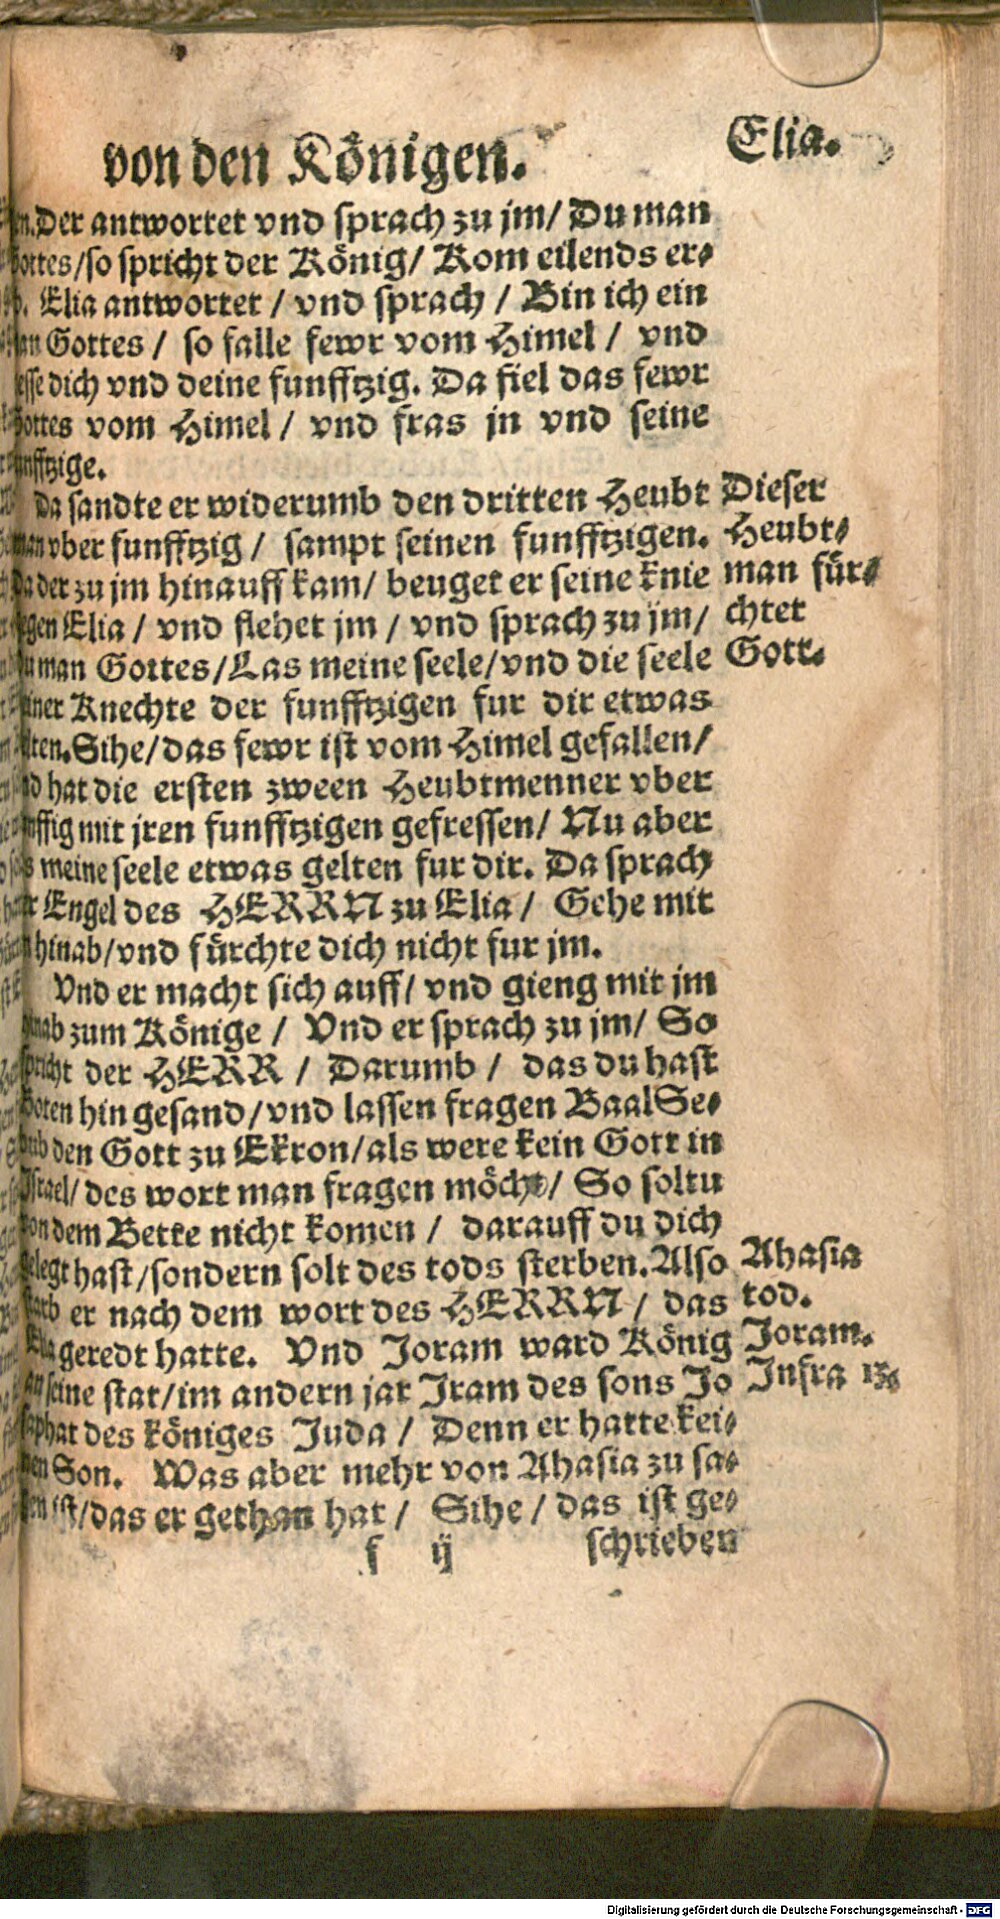 von den Königen.
Elia.
n. Der antwortet vnd sprach zu jm/ Du man
Gottes/so spricht der König/ Kom eilends er-
Elia antwortet / vnd sprach / Bin ich ein
man Gottes / so falle fewr vom Himel / vnd
fresse dich vnd deine funfftzig. Da fiel das fewr
Gottes vom Himel / vnd fras jn vnd seine
funfftzige.
Da sandte er widerumb den dritten Heubt
man vber funfftzig / sampt seinen funfftzigen.
Da der zu jm hinauff kam/ beuget er seine knie
gegen Elia / vnd flehet jm / vnd sprach zu jm/
Du man Gottes/Las meine seele/vnd die seele
deiner Knechte der funfftzigen fur dir etwas
gelten. Sihe/das fewr ist vom Himel gefallen/
vnd hat die ersten zween Heubtmenner vber
funffig mit jren funfftzigen gefressen/ Nu aber
las meine seele etwas gelten fur dir. Da sprach
der Engel des HERRN zu Elia / Gehe mit
jm hinab/vnd fürchte dich nicht fur jm.
Vnd er macht sich auff/ vnd gieng mit jm
hinab zum Könige / Vnd er sprach zu jm/ So
spricht der HERR / Darumb / das du hast
Boten hin gesand/vnd lassen fragen BaalSe-
bub den Gott zu Ekron/als were kein Gott in
Israel/ des wort man fragen möcht/ So soltu
von dem Bette nicht komen / darauff du dich
gelegt hast/sondern solt des tods sterben. Also
starb er nach dem wort des HERRN / das
Elia geredt hatte. Vnd Joram ward König
an seine stat/im andern jar Jram des sons Jo
saphat des königes Juda / Denn er hatte kei-
nen Son. Was aber mehr von Ahasia zu sa-
gen ist/das er gethan hat / Sihe / das ist ge-
f ij schrieben
Dieser
Heubt-
man für-
chtet
Gott.
Ahasia
tod.
Joram.
Infra
Digitalisierung gefördert durch die Deutsche Forschungsgemeinschaft - DFG